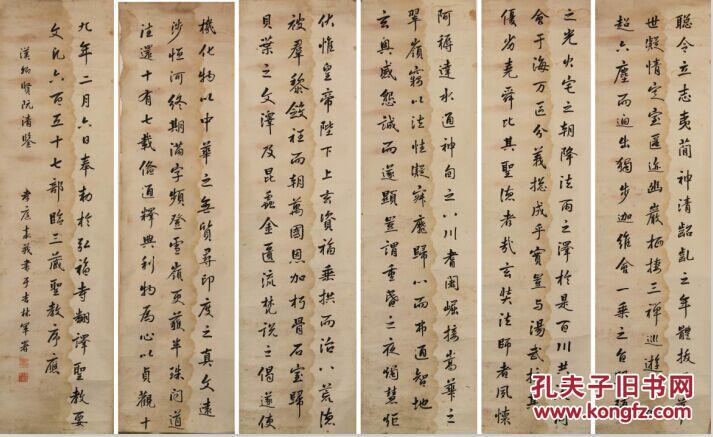 聰令立志夷簡神清齠齔之年體拔
世凝情定室匿迹幽巖栖接三禪巡遊
超六塵而迥出獨步迦維會一乘之旨
之光火宅之朝降法雨之澤於是百川
會于海万區分義揔成乎實豈与湯武挍其
優劣堯舜比其聖德者哉玄奘法師者風懷
阿耨達水通神甸之八川耆闍崛接嵩華之
翠嶺竊以法性凝寂靡歸心而不通智地
玄奥感恳誠而遂顯豈謂重昏之夜燭慧炬
伏惟皇帝陛下上玄資福垂拱而治八荒德
被羣黎斂衽而朝萬國恩加朽骨石室歸
貝葉之文澤及昆蟲金匱流梵説之偈遂使
機化物以中華之無質尋印度之真文遠
涉恒河終期滿字頻登雪嶺更獲半珠問道
法還十有七載俻通釋典利物爲心以貞觀十
九年二月六日奉勅於弘福寺翻譯聖教要
文凡六百五十七部臨三藏聖教序應
漢卿賢阮清鑒
書于杏林軍署
孔夫子旧书网
KONGFZ.COM